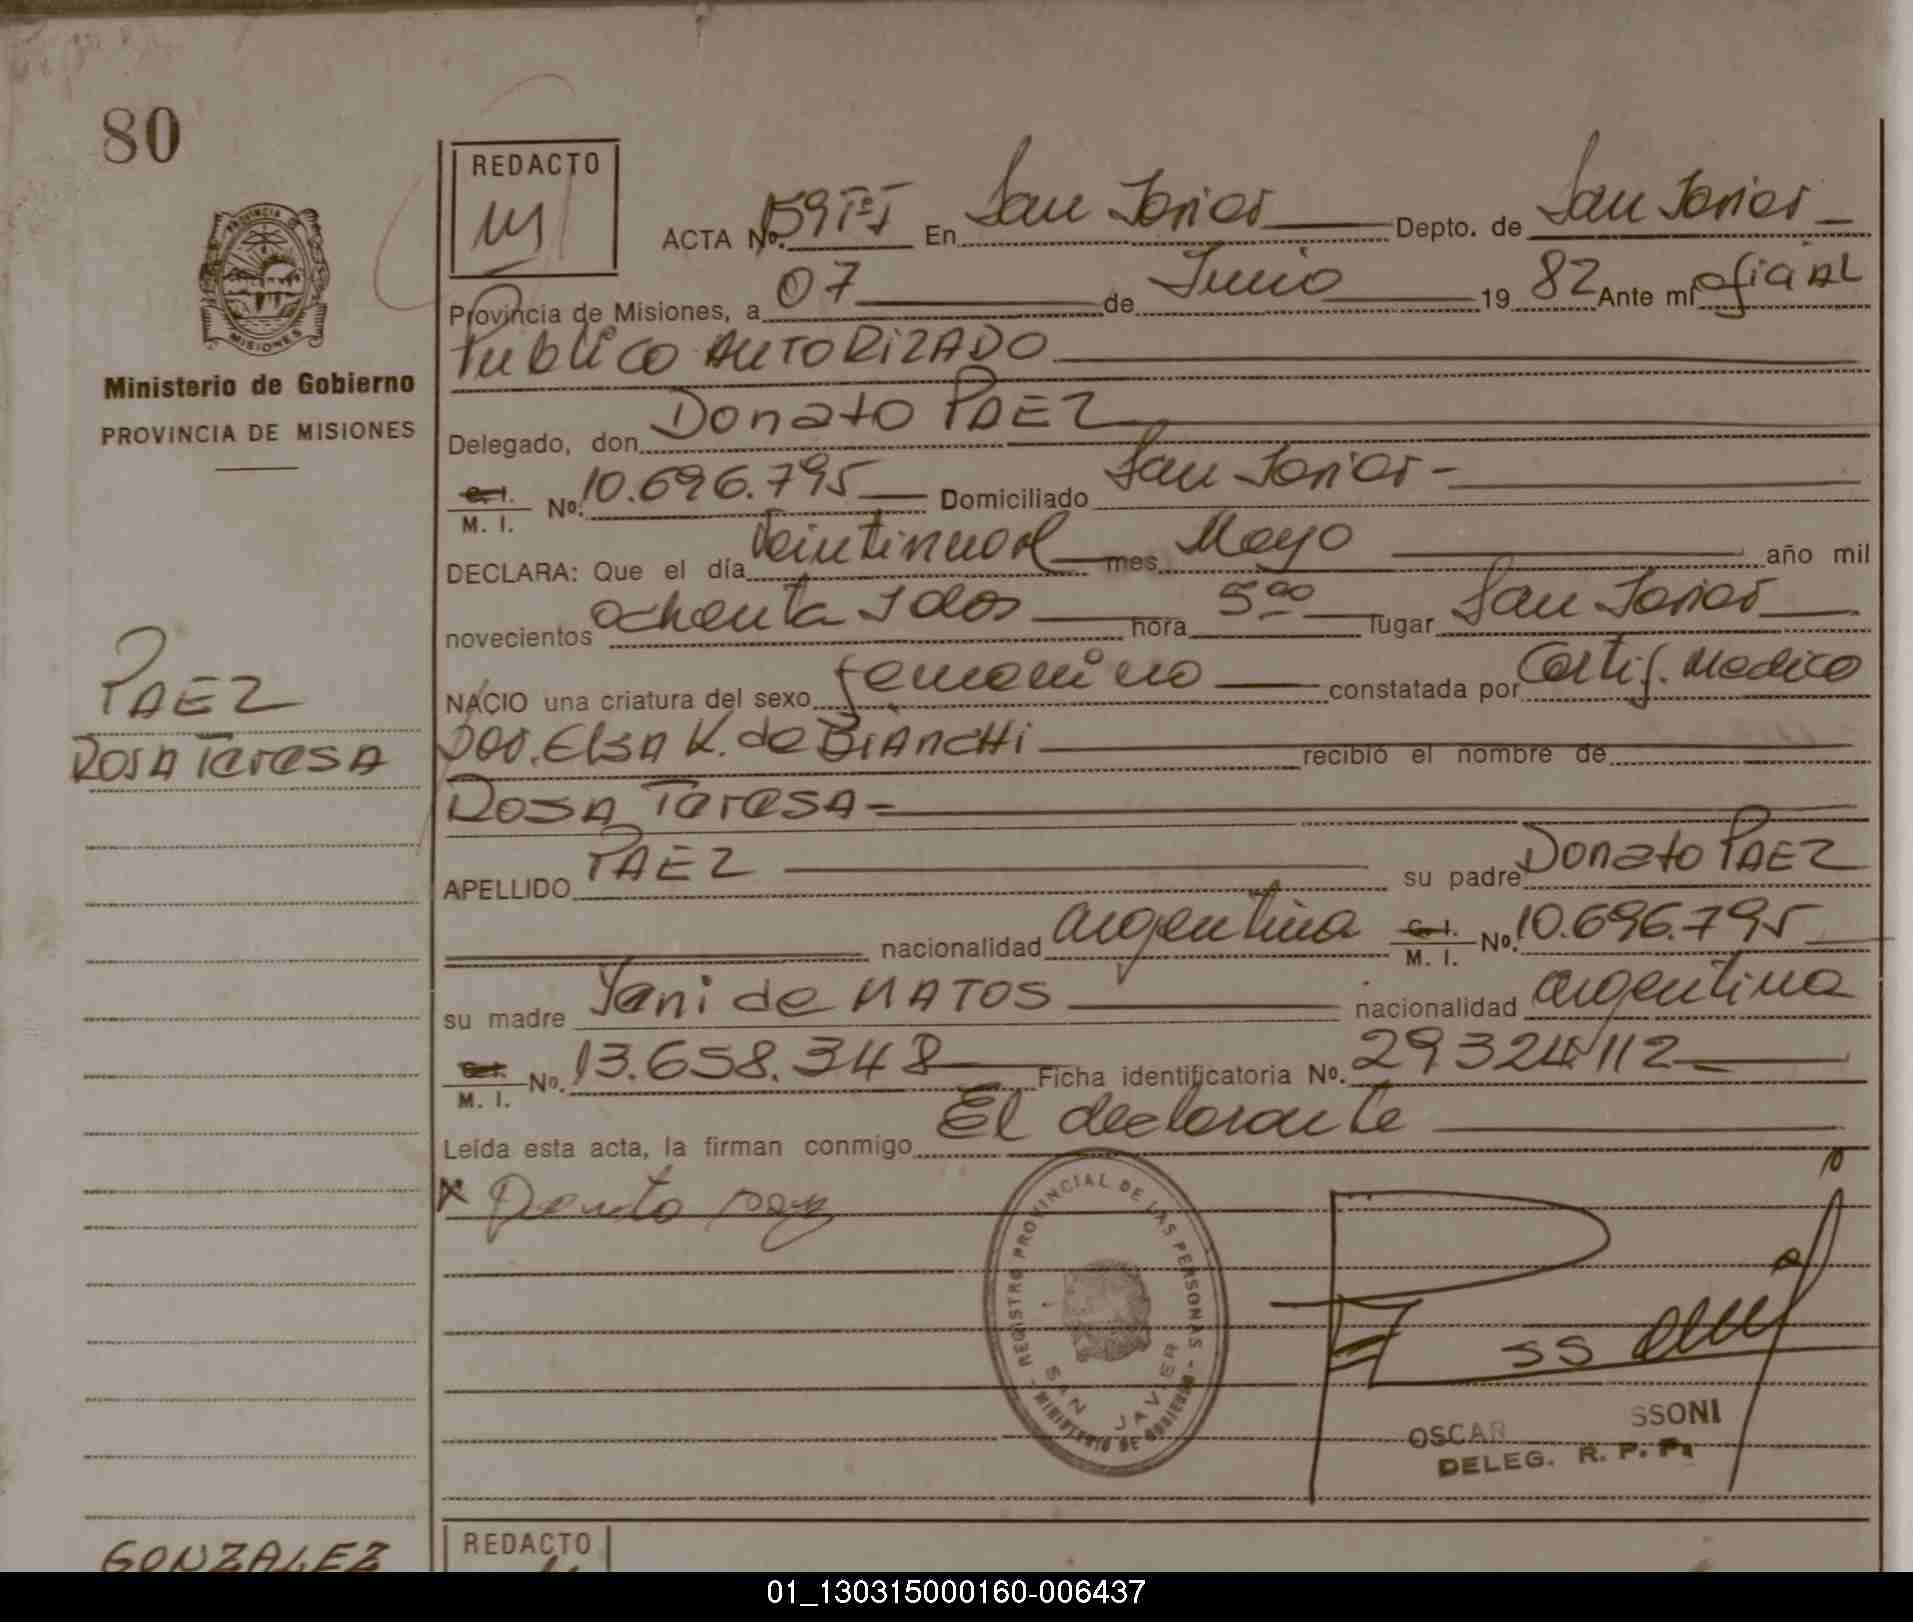 80
REDACTO
ACTA No. 159 Tº I En San Javier Depto. de San Javier
Provincia de Misiones, a 07 de Junio 19 82 Ante mí oficiAL
Publico AUTORIZADO
PROVINCIA DE MISIONES
Ministerio de Gobierno
PROVINCIA DE MISIONES
Delegado, don Donato PAEZ
C. I. M. I. No. 10.696.795 Domiciliado San Javier
DECLARA: Que el día Veintinueve mes Mayo año mil
novecientos ochenta y dos hora 5 00 lugar San Javier
NACIO una criatura del sexo femenino constatada por Certif. Medico
Doo. ElsA K. de BiAncHi recibió el nombre de
RosA TeresA
PAEZ
RosA TeresA
APELLIDO PAEZ su padre Donato PAEZ
nacionalidad argentina C. I. M. I. No. 10.696.795
su madre Yeni de MATOS nacionalidad argentina
C. I. M. I. No. 13.658.348 Ficha identificatoria No. 29324112
Leída esta acta, la firman conmigo El declarante
x Donato paez
REGISTRO PROVINCIAL DE LAS PERSONAS
SAN JAVIER
MINISTERIO DE GOBIERNO
OSCAR SSONI
DELEG. R. P. P.
GONZALEZ
REDACTO
01_130315000160-006437